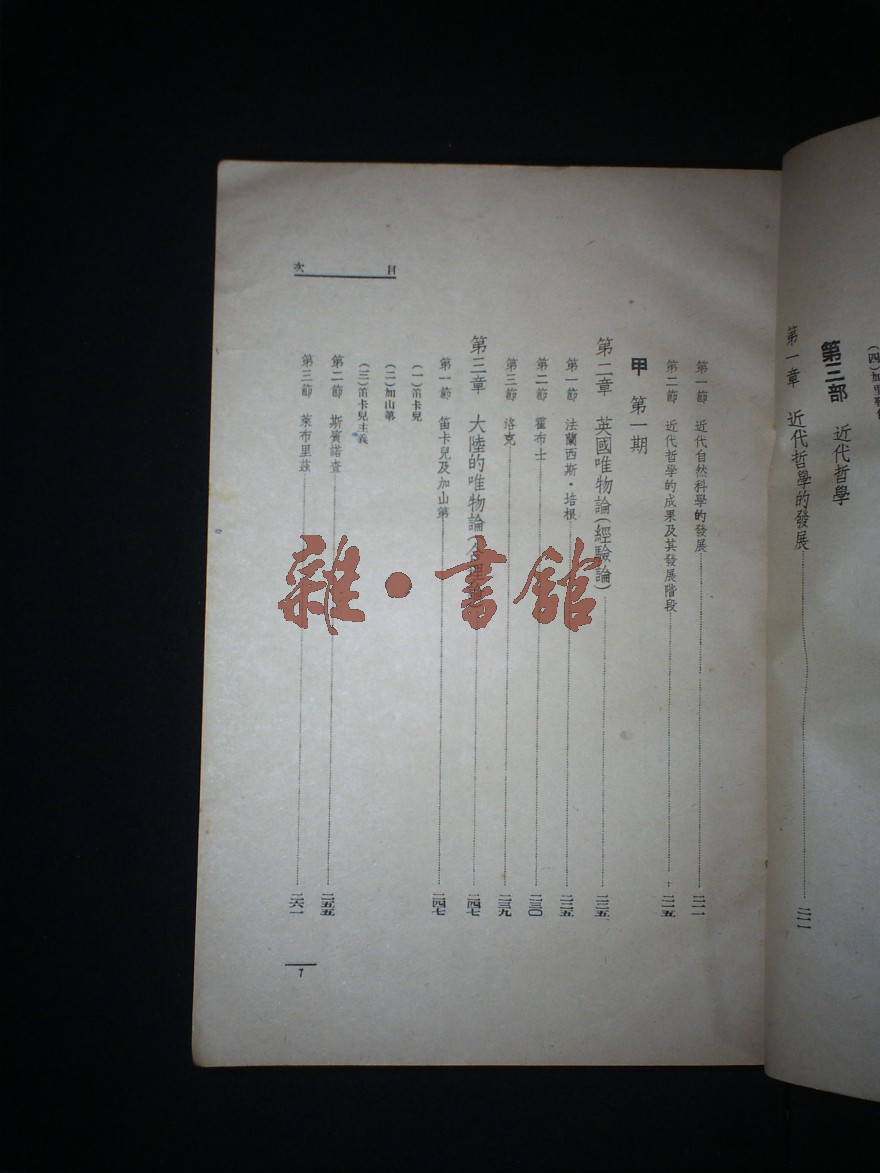 第三部 近代哲學
第一章 近代哲學的發展……二一一
目次
第一節 近代自然科學的發展……二一一
第二節 近代哲學的成果及其發展階段……二一五
甲 第一期
第二章 英國唯物論(經驗論)……二二五
第一節 法蘭西斯・培根……二二五
第二節 霍布士……二三〇
第三節 洛克……二三九
第三章 大陸的唯物論(合理……二四七
第一節 笛卡兒及加山第……二四七
(一)笛卡兒
(二)加山第
(三)笛卡兒主義
第二節 斯賓諾查……二五五
第三節 萊布里茲……二六一
7
雜・書館